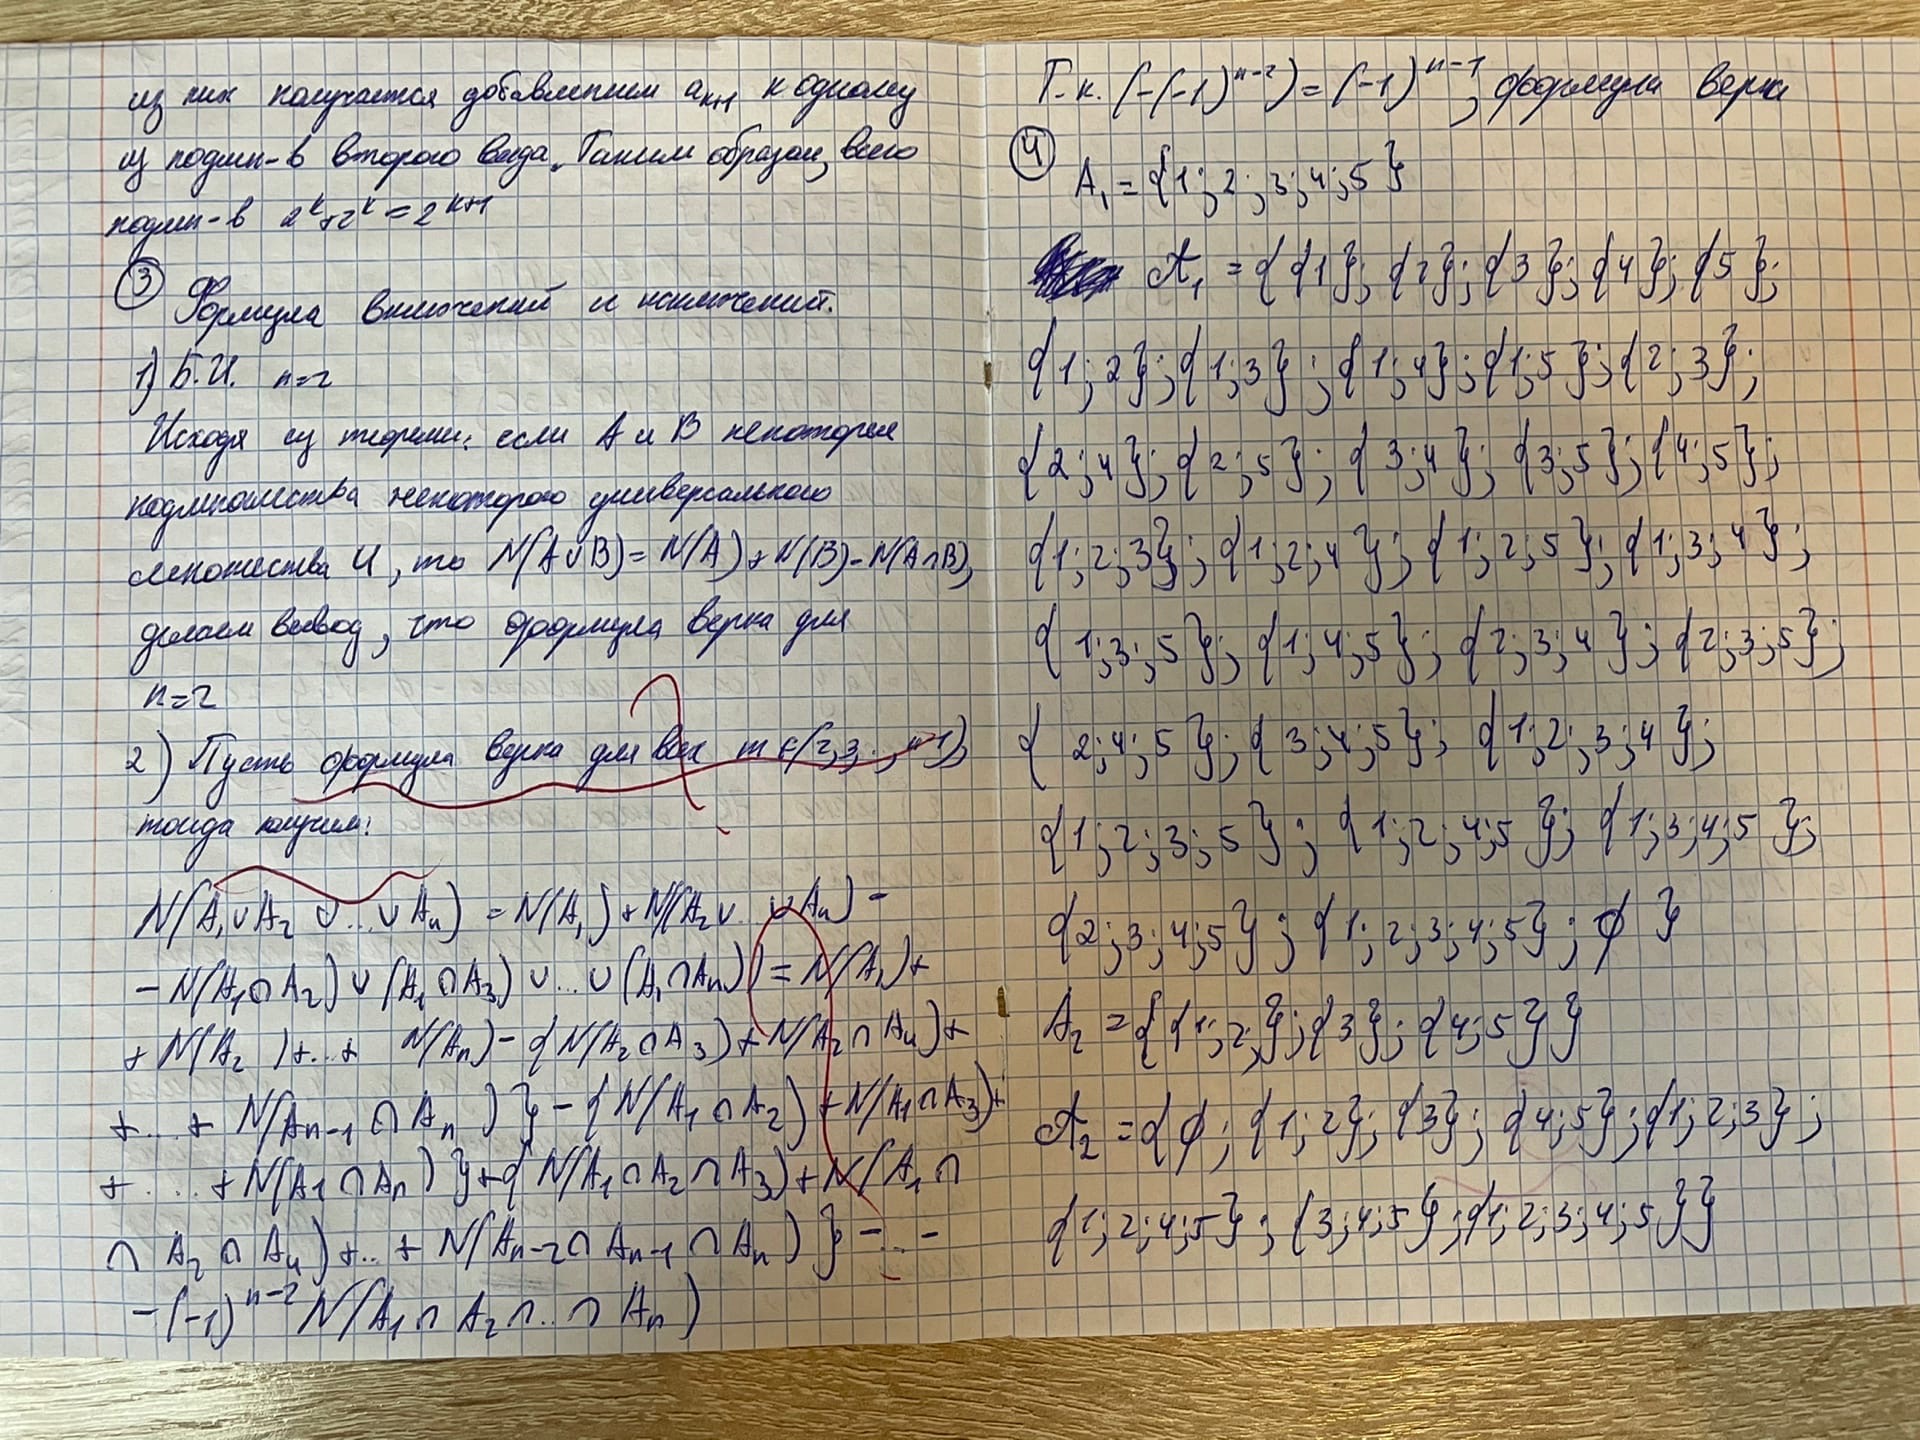 из них получается добавлением a_{k+1} к одному
из подмн-в второго вида. Таким образом, всего
подмн-в 2^k+2^k=2^{k+1}
③ Формула включений и исключений.
1) Б.И. n=2
Исходя из теоремы: если A и B некоторые
подмножества некоторого универсального
множества U, то N(A∪B)=N(A)+N(B)-N(A∩B),
делаем вывод, что формула верна для
n=2
2) Пусть формула верна для всех m∈{2,3,..,n-1},
тогда получим:
N(A₁∪A₂∪...∪Aₙ)=N(A₁)+N(A₂∪...∪Aₙ)-
-N(A₁∩A₂)∪(A₁∩A₃)∪...∪(A₁∩Aₙ))=N(A₁)+
+N(A₂)+..+N(Aₙ)-{N(A₂∩A₃)+N(A₂∩A₄)+
+...+N(Aₙ₋₁∩Aₙ)}-{N(A₁∩A₂)+N(A₁∩A₃)+
+...+N(A₁∩Aₙ)}+{N(A₁∩A₂∩A₃)+N(A₁∩
∩A₂∩A₄)+..+N(Aₙ₋₂∩Aₙ₋₁∩Aₙ)}-..-
-(-1)^{n-2}N(A₁∩A₂∩..∩Aₙ)
Т.к. (-(-1)^{n-2})=(-1)^{n-1}, формула верна
④ A₁={1;2;3;4;5}
𝒜₁={{1};{2};{3};{4};{5};
{1;2};{1;3};{1;4};{1;5};{2;3};
{2;4};{2;5};{3;4};{3;5};{4;5};
{1;2;3};{1;2;4};{1;2;5};{1;3;4};
{1;3;5};{1;4;5};{2;3;4};{2;3;5};
{2;4;5};{3;4;5};{1;2;3;4};
{1;2;3;5};{1;2;4;5};{1;3;4;5};
{2;3;4;5};{1;2;3;4;5};∅}
A₂={{1;2;};{3};{4;5}}
𝒜₂={∅;{1;2};{3};{4;5};{1;2;3};
{1;2;4;5};{3;4;5};{1;2;3;4;5}}